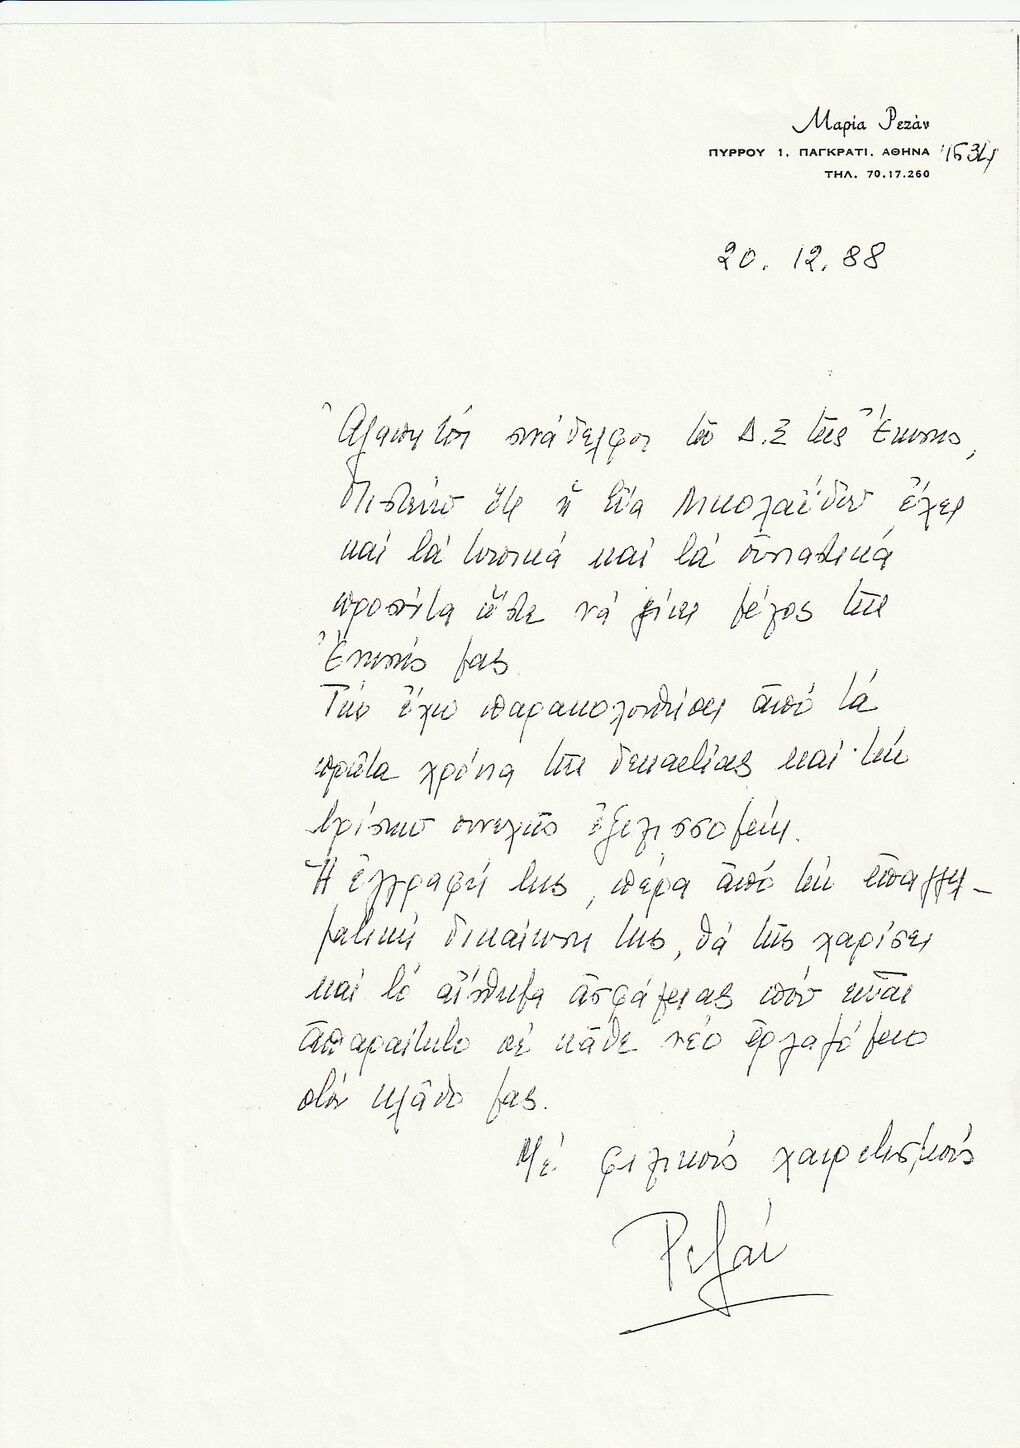 Μαρία Ρεζάν
ΠΥΡΡΟΥ 1, ΠΑΓΚΡΑΤΙ, ΑΘΗΝΑ
ΤΗΛ. 70.17.260
20. 12. 88
Ἀγαπητοί συνάδελφοι τοῦ Δ.Σ τῆς Ἑνώσης,
Πιστεύω ὅτι ἡ Εὔα Νικολαΐδου ἔχει
καί τά τυπικά καί τά οὐσιαστικά
προσόντα ὥστε νά γίνει μέλος τῆς
Ἑνωσής μας.
Τήν ἔχω παρακολουθήσει ἀπό τά
πρῶτα χρόνια τῆς δεκαετίας καί τήν
βρίσκω συνεχῶς ἐξελισσομένη.
Ἡ ἐγγραφή της, πέρα ἀπό τήν ἐπαγγελ-
ματική δικαίωσή της, θά τῆς χαρίσει
καί τό αἴσθημα ἀσφάλειας πού εἶναι
ἀπαραίτητο σέ κάθε νέο ἐργαζόμενο
στόν κλάδο μας.
Μέ φιλικούς χαιρετισμούς
Ρεζάν